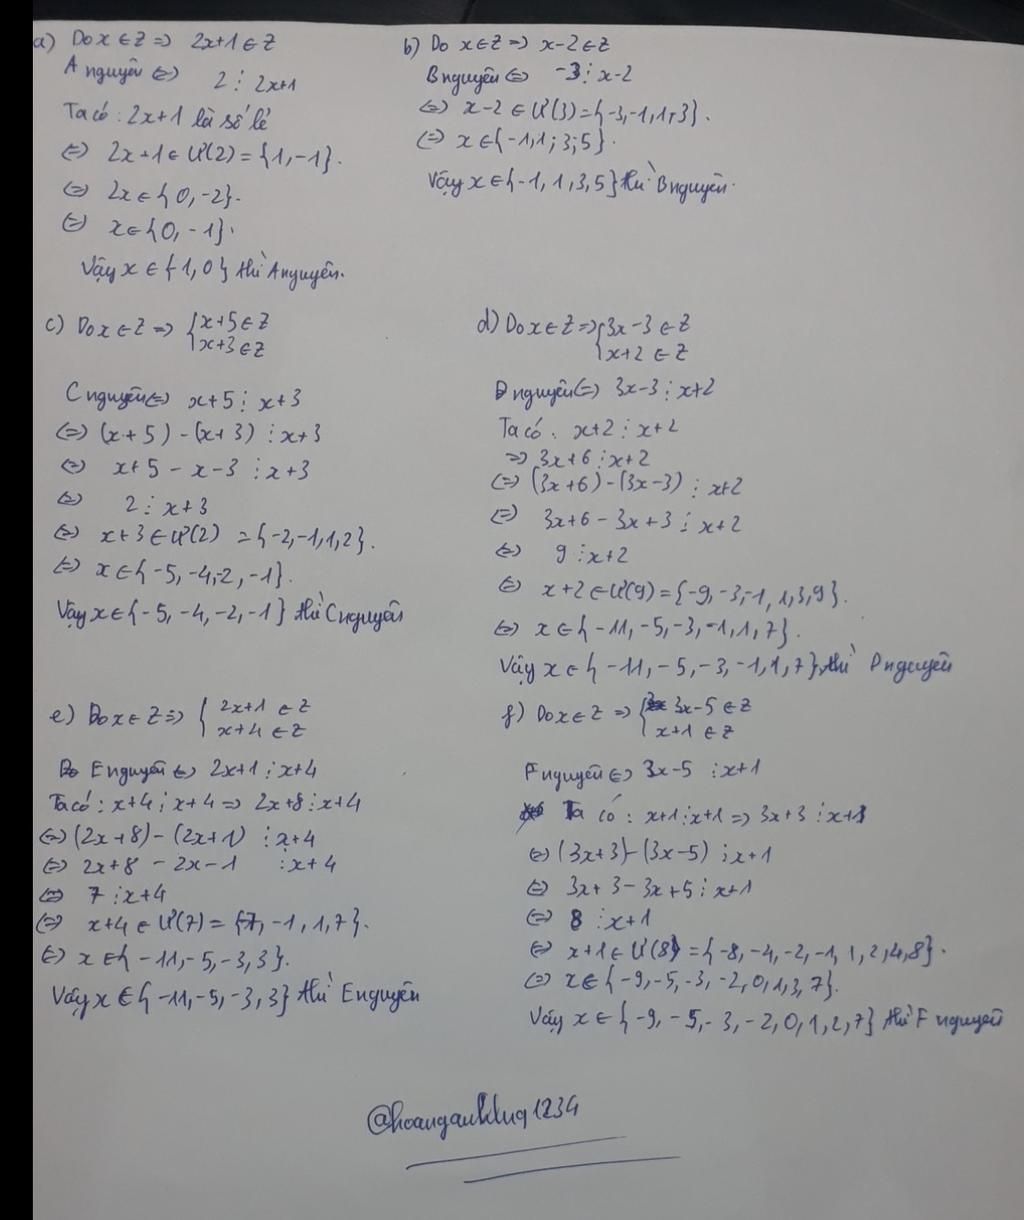 a) Do x ∈ Z => 2x+1 ∈ Z
A nguyên <=> 2 ⋮ 2x+1
Ta có : 2x+1 là số lẻ
<=> 2x+1 ∈ Ư(2) = {1,-1}.
<=> 2x ∈ {0,-2}.
<=> x ∈ {0,-1}.
Vậy x ∈ {-1,0} thì A nguyên.
b) Do x ∈ Z => x-2 ∈ Z
B nguyên <=> -3 ⋮ x-2
<=> x-2 ∈ Ư(3) = {-3,-1,1,3}.
<=> x ∈ {-1,1;3;5}.
Vậy x ∈ {-1,1,3,5} thì B nguyên.
c) Do x ∈ Z => { x+5 ∈ Z
x+3 ∈ Z
C nguyên <=> x+5 ⋮ x+3
<=> (x+5) - (x+3) ⋮ x+3
<=> x+5 - x-3 ⋮ x+3
<=> 2 ⋮ x+3
<=> x+3 ∈ Ư(2) = {-2,-1,1,2}.
<=> x ∈ {-5,-4,-2,-1}.
Vậy x ∈ {-5,-4,-2,-1} thì C nguyên
d) Do x ∈ Z => { 3x-3 ∈ Z
x+2 ∈ Z
D nguyên <=> 3x-3 ⋮ x+2
Ta có : x+2 ⋮ x+2
=> 3x+6 ⋮ x+2
<=> (3x+6) - (3x-3) ⋮ x+2
<=> 3x+6 - 3x+3 ⋮ x+2
<=> 9 ⋮ x+2
<=> x+2 ∈ Ư(9) = {-9,-3,-1,1,3,9}.
<=> x ∈ {-11,-5,-3,-1,1,7}.
Vậy x ∈ {-11,-5,-3,-1,1,7} thì D nguyên
e) Do x ∈ Z => { 2x+1 ∈ Z
x+4 ∈ Z
E nguyên <=> 2x+1 ⋮ x+4
Ta có : x+4 ⋮ x+4 => 2x+8 ⋮ x+4
<=> (2x+8) - (2x+1) ⋮ x+4
<=> 2x+8 - 2x-1 ⋮ x+4
<=> 7 ⋮ x+4
<=> x+4 ∈ Ư(7) = {-7,-1,1,7}.
<=> x ∈ {-11,-5,-3,3}.
Vậy x ∈ {-11,-5,-3,3} thì E nguyên
f) Do x ∈ Z => { 3x-5 ∈ Z
x+1 ∈ Z
F nguyên <=> 3x-5 ⋮ x+1
Ta có : x+1 ⋮ x+1 => 3x+3 ⋮ x+1
<=> (3x+3) - (3x-5) ⋮ x+1
<=> 3x+3 - 3x+5 ⋮ x+1
<=> 8 ⋮ x+1
<=> x+1 ∈ Ư(8) = {-8,-4,-2,-1,1,2,4,8}.
<=> x ∈ {-9,-5,-3,-2,0,1,3,7}.
Vậy x ∈ {-9,-5,-3,-2,0,1,2,7} thì F nguyên